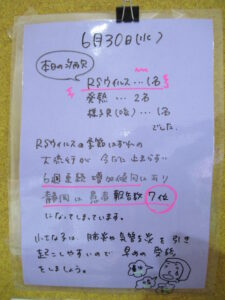 6月30日(水)
本日の欠席
RSウイルス…1名
発熱…2名
様子見(咳)…1名
でした。
RSウイルスの季節はずれの
大流行が今だに止まらず…
6週連続増加傾向にあり
静岡は患者報告数7位
になってしまっています。
小さな子は、肺炎や気管支炎を引き
起こしやすいので早めの受診
をしましょう。